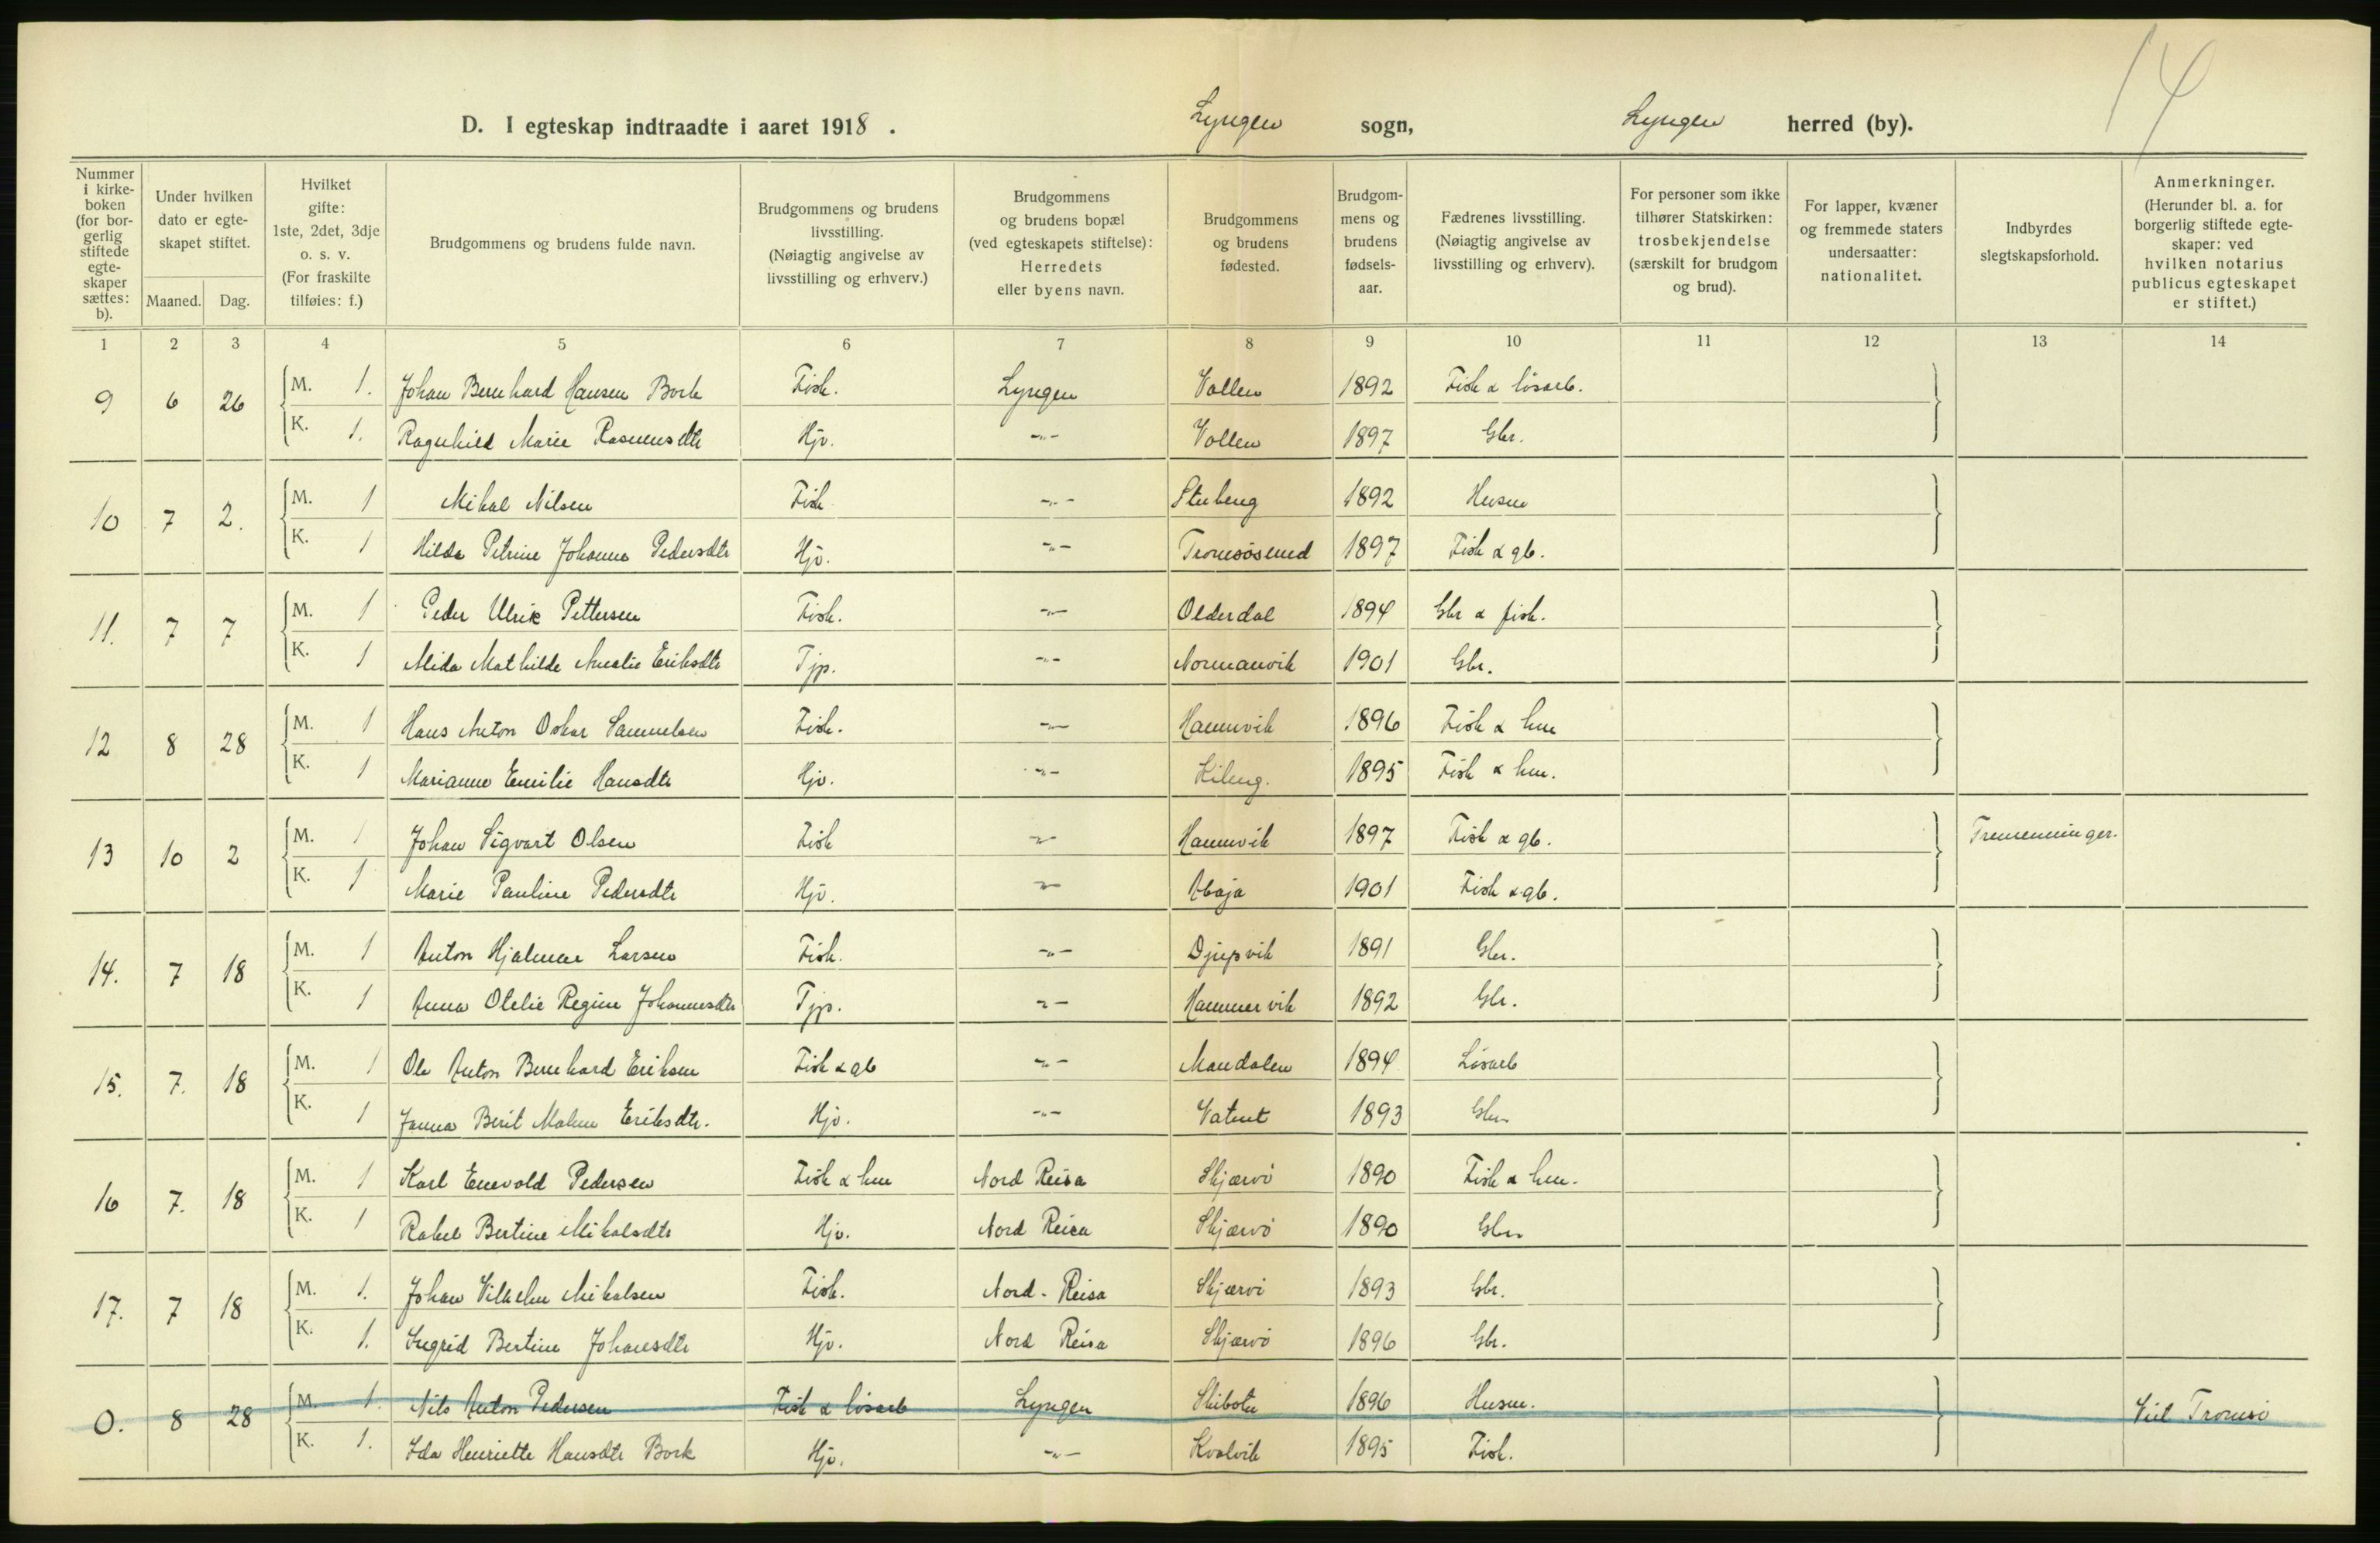 14
D. I egteskap indtraadte i aaret 1918. Lyngen sogn, Lyngen herred (by).
Nummer i kirke-boken (for bor-gerlig stiftede egte-skaper sættes: b).
Under hvilken dato er egte-skapet stiftet.
Maaned. Dag.
Hvilket gifte: 1ste, 2det, 3dje o. s. v. (For fraskilte tilføies: f.)
Brudgommens og brudens fulde navn.
Brudgommens og brudens livsstilling. (Nøiagtig angivelse av livsstilling og erhverv.)
Brudgommens og brudens bopæl (ved egteskapets stiftelse): Herredets eller byens navn.
Brudgommens og brudens fødested.
Brudgom-mens og brudens fødsels-aar.
Fædrenes livsstilling. (Nøiagtig angivelse av livsstilling og erhverv).
For personer som ikke tilhører Statskirken: trosbekjendelse (særskilt for brudgom og brud).
For lapper, kvæner og fremmede staters undersaatter: nationalitet.
Indbyrdes slegtskapsforhold.
Anmerkninger. (Herunder bl. a. for borgerlig stiftede egte-skaper: ved hvilken notarius publicus egteskapet er stiftet.)
1 2 3 4 5 6 7 8 9 10 11 12 13 14
9 6 26 M. 1. Johan Bernhard Hansen Bork Fisk. Lyngen Vollen 1892 Fisk & løsarb.
K. 1. Ragnhild Marie Rasmusdtr Hjv. -"- Vollen 1897 Gbr.
10 7 2. M. 1 Mikal Nilsen Fisk -"- Stubeng 1892 Husm
K. 1 Hilda Petrine Johanna Pedersdtr Hjv. -"- Tromsøsund 1897 Fisk & gb.
11. 7 7 M. 1 Peder Ulrik Pettersen Fisk. -"- Olderdal 1894 Gbr & fisk.
K. 1 Alida Mathilde Amalie Eriksdtr Tjp. -"- Normanvik 1901 Gbr.
12 8 28 M. 1 Hans Anton Oskar Samuelsen Fisk. -"- Hamnvik 1896 Fisk & hm
K. 1 Marianne Emilie Hansdtr Hjv. -"- Kileng. 1895 Fisk & hm.
13 10 2 M. 1 Johan Sigvart Olsen Fisk -"- Hamnvik 1897 Fisk & gb. Tremenninger.
K. 1 Marie Pauline Pedersdtr Hjv. -"- Abaja 1901 Fisk & gb.
14. 7 18 M. 1 Anton Hjalmar Larsen Fisk. -"- Djupvik 1891 Gbr.
K. 1 Anna Olelie Regine Johannesdtr Tjp. -"- Hammervik 1892 Gbr.
15. 7. 18 M. 1 Ole Anton Bernhard Eriksen Fisk & gb -"- Mandalen 1894 Løsarb
K. 1 Janna Berit Malene Eriksdtr. Hjv. -"- Vatnet 1893 Gbr.
16 7. 18 M. 1 Karl Enevold Pedersen Fisk & hm Nord Reisa Skjærvø 1890 Fisk & hm.
K. 1 Rakel Bertine Mikalsdtr Hjv. Nord Reisa Skjærvø 1890 Gbr
17. 7 18 M. 1. Johan Vilhelm Mikalsen Fisk. Nord-Reisa Skjærvø 1893 Gbr.
K. 1. Ingrid Bertine Johansdtr Hjv. Nord Reisa Skjærvø 1896 Gbr.
0. 8 28 M. 1. Nils Anton Pedersen Fisk & løsarb Lyngen Skibotn 1896 Husm. Viet Tromsø
K. 1. Ida Henriette Hansdtr Bork Hjv. -"- Kvalvik 1895 Fisk.